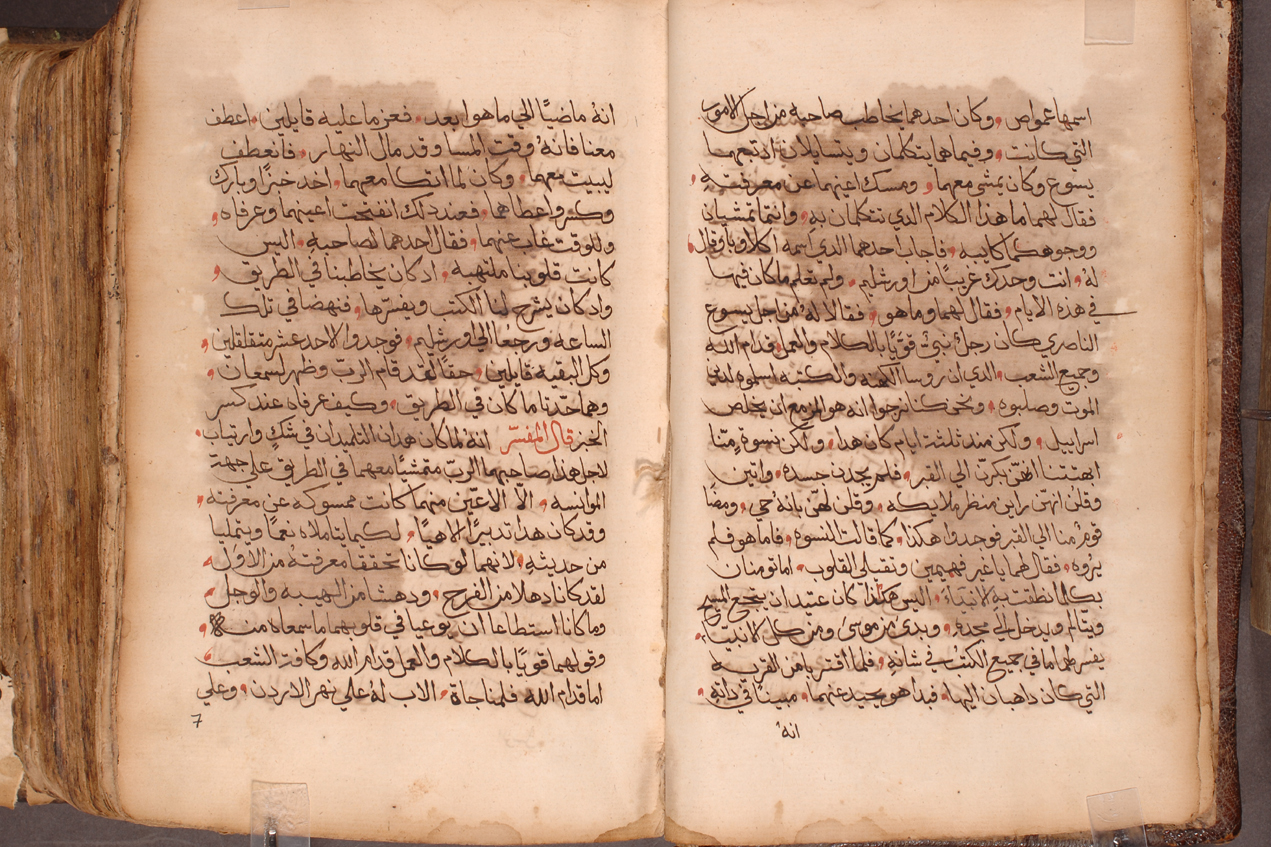 اسمها عمواص، وكان احدهما يخاطب صاحبه من اجل الامور
التي كانت، وفيما هما يتكلمان ويتسايلان اذ تبعهما
يسوع وكان يمشي معهما، ومسك اعينهما عن معرفته،
فقال لهما ما هذا الكلام الذي تتكلمان به، وانتما تمشيان
ووجوهكما كايبه، فاجاب احدهما الذي اسمه اكلاوبا وقال
لهُ، انت وحدك غريبًا من اورشليم، ولم تعلم ما كان فيها
في هذه الايام، فقال لهما وما هو، فقالا لهُ من اجل يسوع
الناصري كان رجلٌ نبيٌ قويًا بالكلام والعمل قدام الله
وجميع الشعب، الذي ان روسا الكهنه والكتبه اسلموه الي
الموت وصلبوه، ونحن كنا نرجوا انه هو المزمع ان يخلص
اسراييل، ولكن منذ ثلثة ايام كان هدا، ولكن نسوة مِنّا
ابهتننا انهنّ بكرن الي القبر، فلم يجدن جسده، واتين
وقلن انهن راين منظر ملايكه، وقلن لهنّ بانهُ حي، ومضَا
قوم منا الي القبر فوجدوا هكذا، كما قالت النسوة، فاما هو فلم
يرُوه، فقال لهما يا غير فهيمين وثقيلي القلوب، اما تومنان
بكلما نطقت به الانبيَاء، اليس هكذا كان عتيدان يخجع المسيح
ويتالم ويدخل الي مجده، وبدي من موسَى ومن كل الانبيَاء،
يفسر لهما ما في جميع الكتب في شانهِ، فلما اقتربا من القريه
التي كان داهبان اليها، فبدا هو يحيد عنهما، مبينًا في ذاته،
انهُ
انهُ ماضيًا الي ما هو ابعد، فعزما عليه قايلين، اعطف
معنا فانهُ وقت المسا وقد مال النهار، فانعطف
ليبيت معهما، وكان لما اتكا معهما، اخد خبزًا وبارك
وكسر واعطاهما، فعند دلك انفتحت اعينهما وعرفاه،
وللوقت غاب عنهما، فقال احدهما لصاحبه، اليس
كانت قلوبنا ملتهبه، اد كان يخاطبنا في الطريق،
واد كان يشرح لنا الكتب ويفسّرها، فنهضا في تلك
الساعه ورجعُا الي اورشليم، فوجدوا الاحد عشر متقلقلين،
وكل البقيه قايلين، حقًا لقد قام الربّ وظهر لسمعان،
وهما حدّثا ما كان في الطريق، وكيف عرفاه عند كسر
الخبز قال المفسّر انهُ لما كان هدان التلميدان في شك وارتياب،
لاجل هدا صاحبهما الربّ متمشيًا معهما في الطريق علي جهة
الموانسه، الاّ الاعيّن منهما كانت ممسوكه عن معرفته،
وقد كان هدا تدبيرًا الاهيًا، لكيما يتاملاه نعمًا ويتمليا
من حديثه، لانهما لو كانا تحققا معرفتهُ من الأول،
لقد كانا دهلا من الفرح، ودهشا من الهيبه والوجل،
وما كانا استطاعا ان يوعيا في قلوبهما ما سمعاه منه،
وقولهما قويًا بالكلام والعمل قدام الله وكافة الشعب،
اما قدام الله فلمناجاة، الاب لهُ علي نهر الاردن، وعلي
7